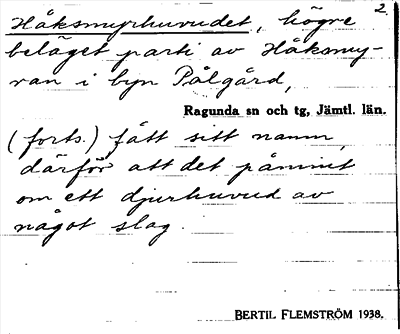 2.
Håksmyrhuvudet, högre
beläget parti av Håksmy-
ran i byn Pålgård,
Ragunda sn och tg, Jämtl. län.
(forts.) fått sitt namn
därför att det påmint
om ett djurhuvud av
något slag.
BERTIL FLEMSTRÖM 1938.